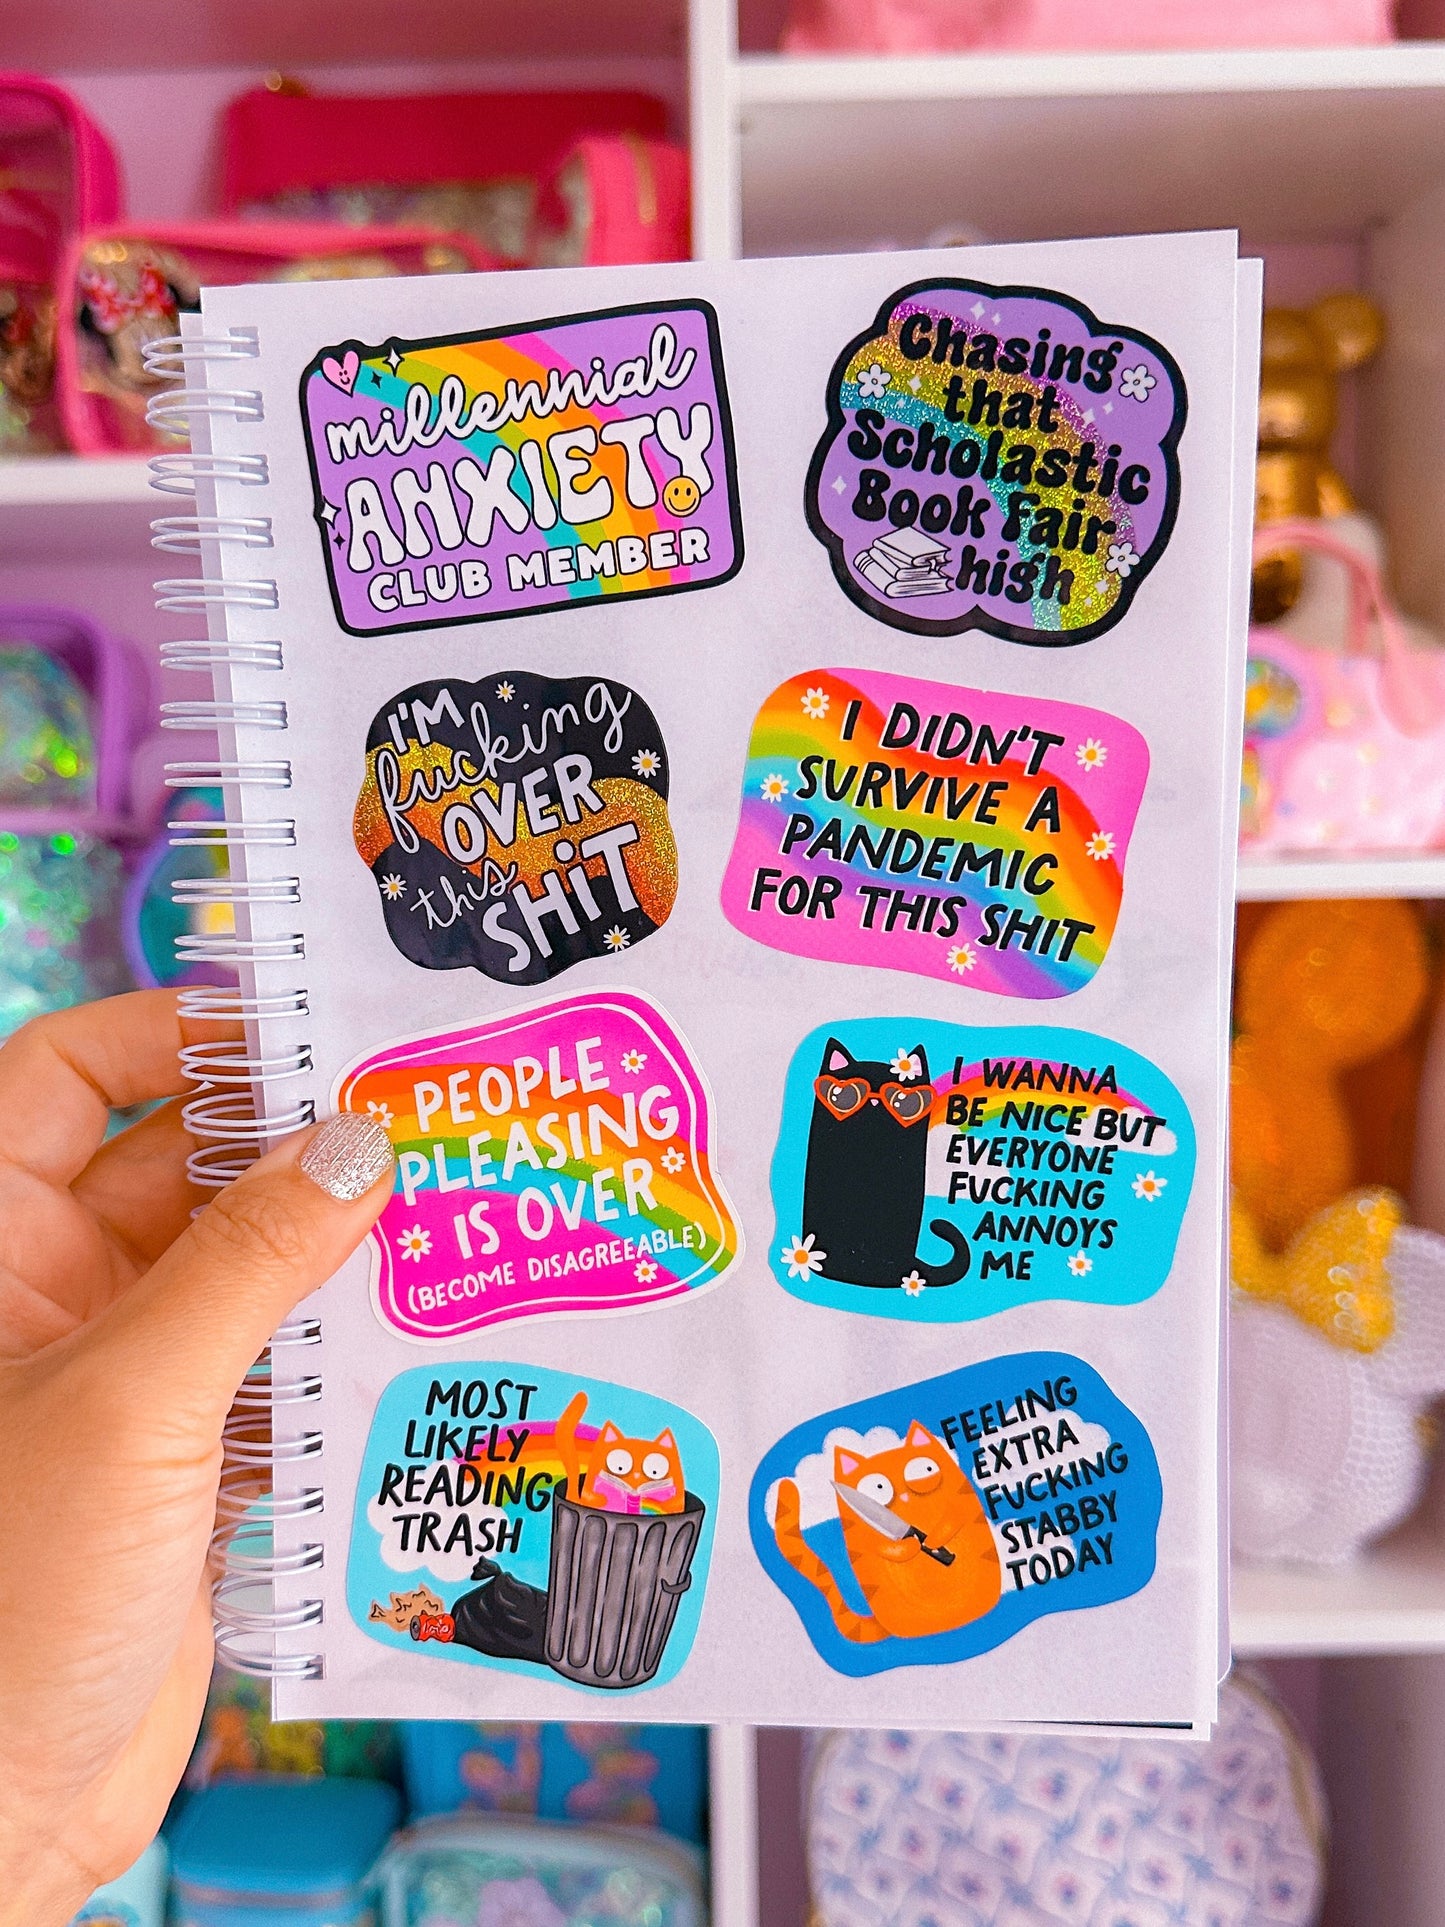 millennial
ANXIETY
CLUB MEMBER
Chasing
that
Scholastic
Book Fair
high
I'M
fucking
OVER
this
SHiT
I DIDN'T
SURVIVE A
PANDEMIC
FOR THIS SHIT
PEOPLE
PLEASING
IS OVER
(BECOME DISAGREEABLE)
I WANNA
BE NICE BUT
EVERYONE
FUCKING
ANNOYS
ME
MOST
LIKELY
READING
TRASH
FEELING
EXTRA
FUCKING
STABBY
TODAY